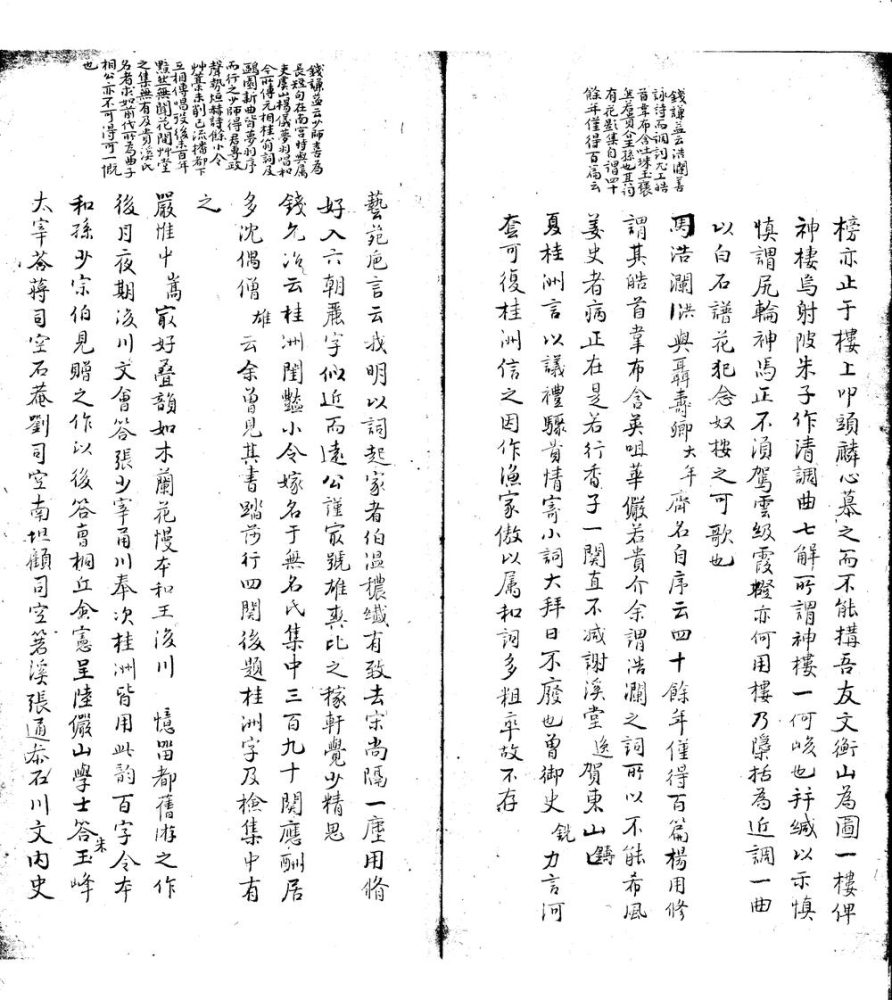 榜亦止于樓上叩頭禱心慕之而不能搆吾友文衡山為圖一樓俾
神棲焉射陂朱子作清調曲七解所謂神樓一何峻也并緘以示慎
慎謂尻輪神馮正不須駕雲級霞磴亦何用樓乃檃括為近調一曲
以白石譜花犯念奴按之可歌也
錢謙益云浩瀾善
詠詩而調詞尤工皓
首韋布含吐珠玉錦
與若貴介王孫也其詞
有花影集自謂四十
餘年僅得百篇云
馬浩瀾洪與聶壽卿大年齊名自序云四十餘年僅得百篇楊用修
謂其皓首韋布含英咀華儼若貴介余謂浩瀾之詞所以不能希風
姜史者病正在是若行香子一闋直不减謝溪堂逸賀東山鑄也
夏桂洲言以議禮驟貴情寄小詞大拜日不廢也曾御史銑力言河
套可復桂洲信之因作漁家傲以属和詞多粗率故不存
錢謙益云少師喜為
長短句在南宫時與属
吏虞山楊儀夢羽唱和
今所傳元相桂翁詞及
鷗園新曲皆夢羽序
而行之少師得君專政
聲勢烜赫詩餘小令
艸藁未削已流播都下
互相傳唱歿後未百年
黯然無聞花間艸堂
之集無有及貴溪氏
名者求如前代所為曲子
相公亦不可得可一慨
也
藝苑巵言云我明以詞起家者伯温穠纖有致去宋尚隔一塵用脩
好入六朝麗字似近而遠公謹㝡號雄爽比之稼軒覺少精思
錢允治云桂洲閨豔小令嫁名于無名氏集中三百九十闋應酬居
多沈偶僧雄云余曾見其書踏莎行四闋後題桂洲字及檢集中有
之
嚴惟中嵩㝡好疊韻如木蘭花慢本和王浚川憶留都舊游之作
後月夜期浚川文會答張少宰甬川奉次桂洲皆用此韵百字令本
和孫少宗伯見贈之作以後答曹桐丘僉憲呈陸儼山學士答朱玉峰
太宰荅蔣司空石菴劉司空南坦顧司空箬溪張通叅石川文内史